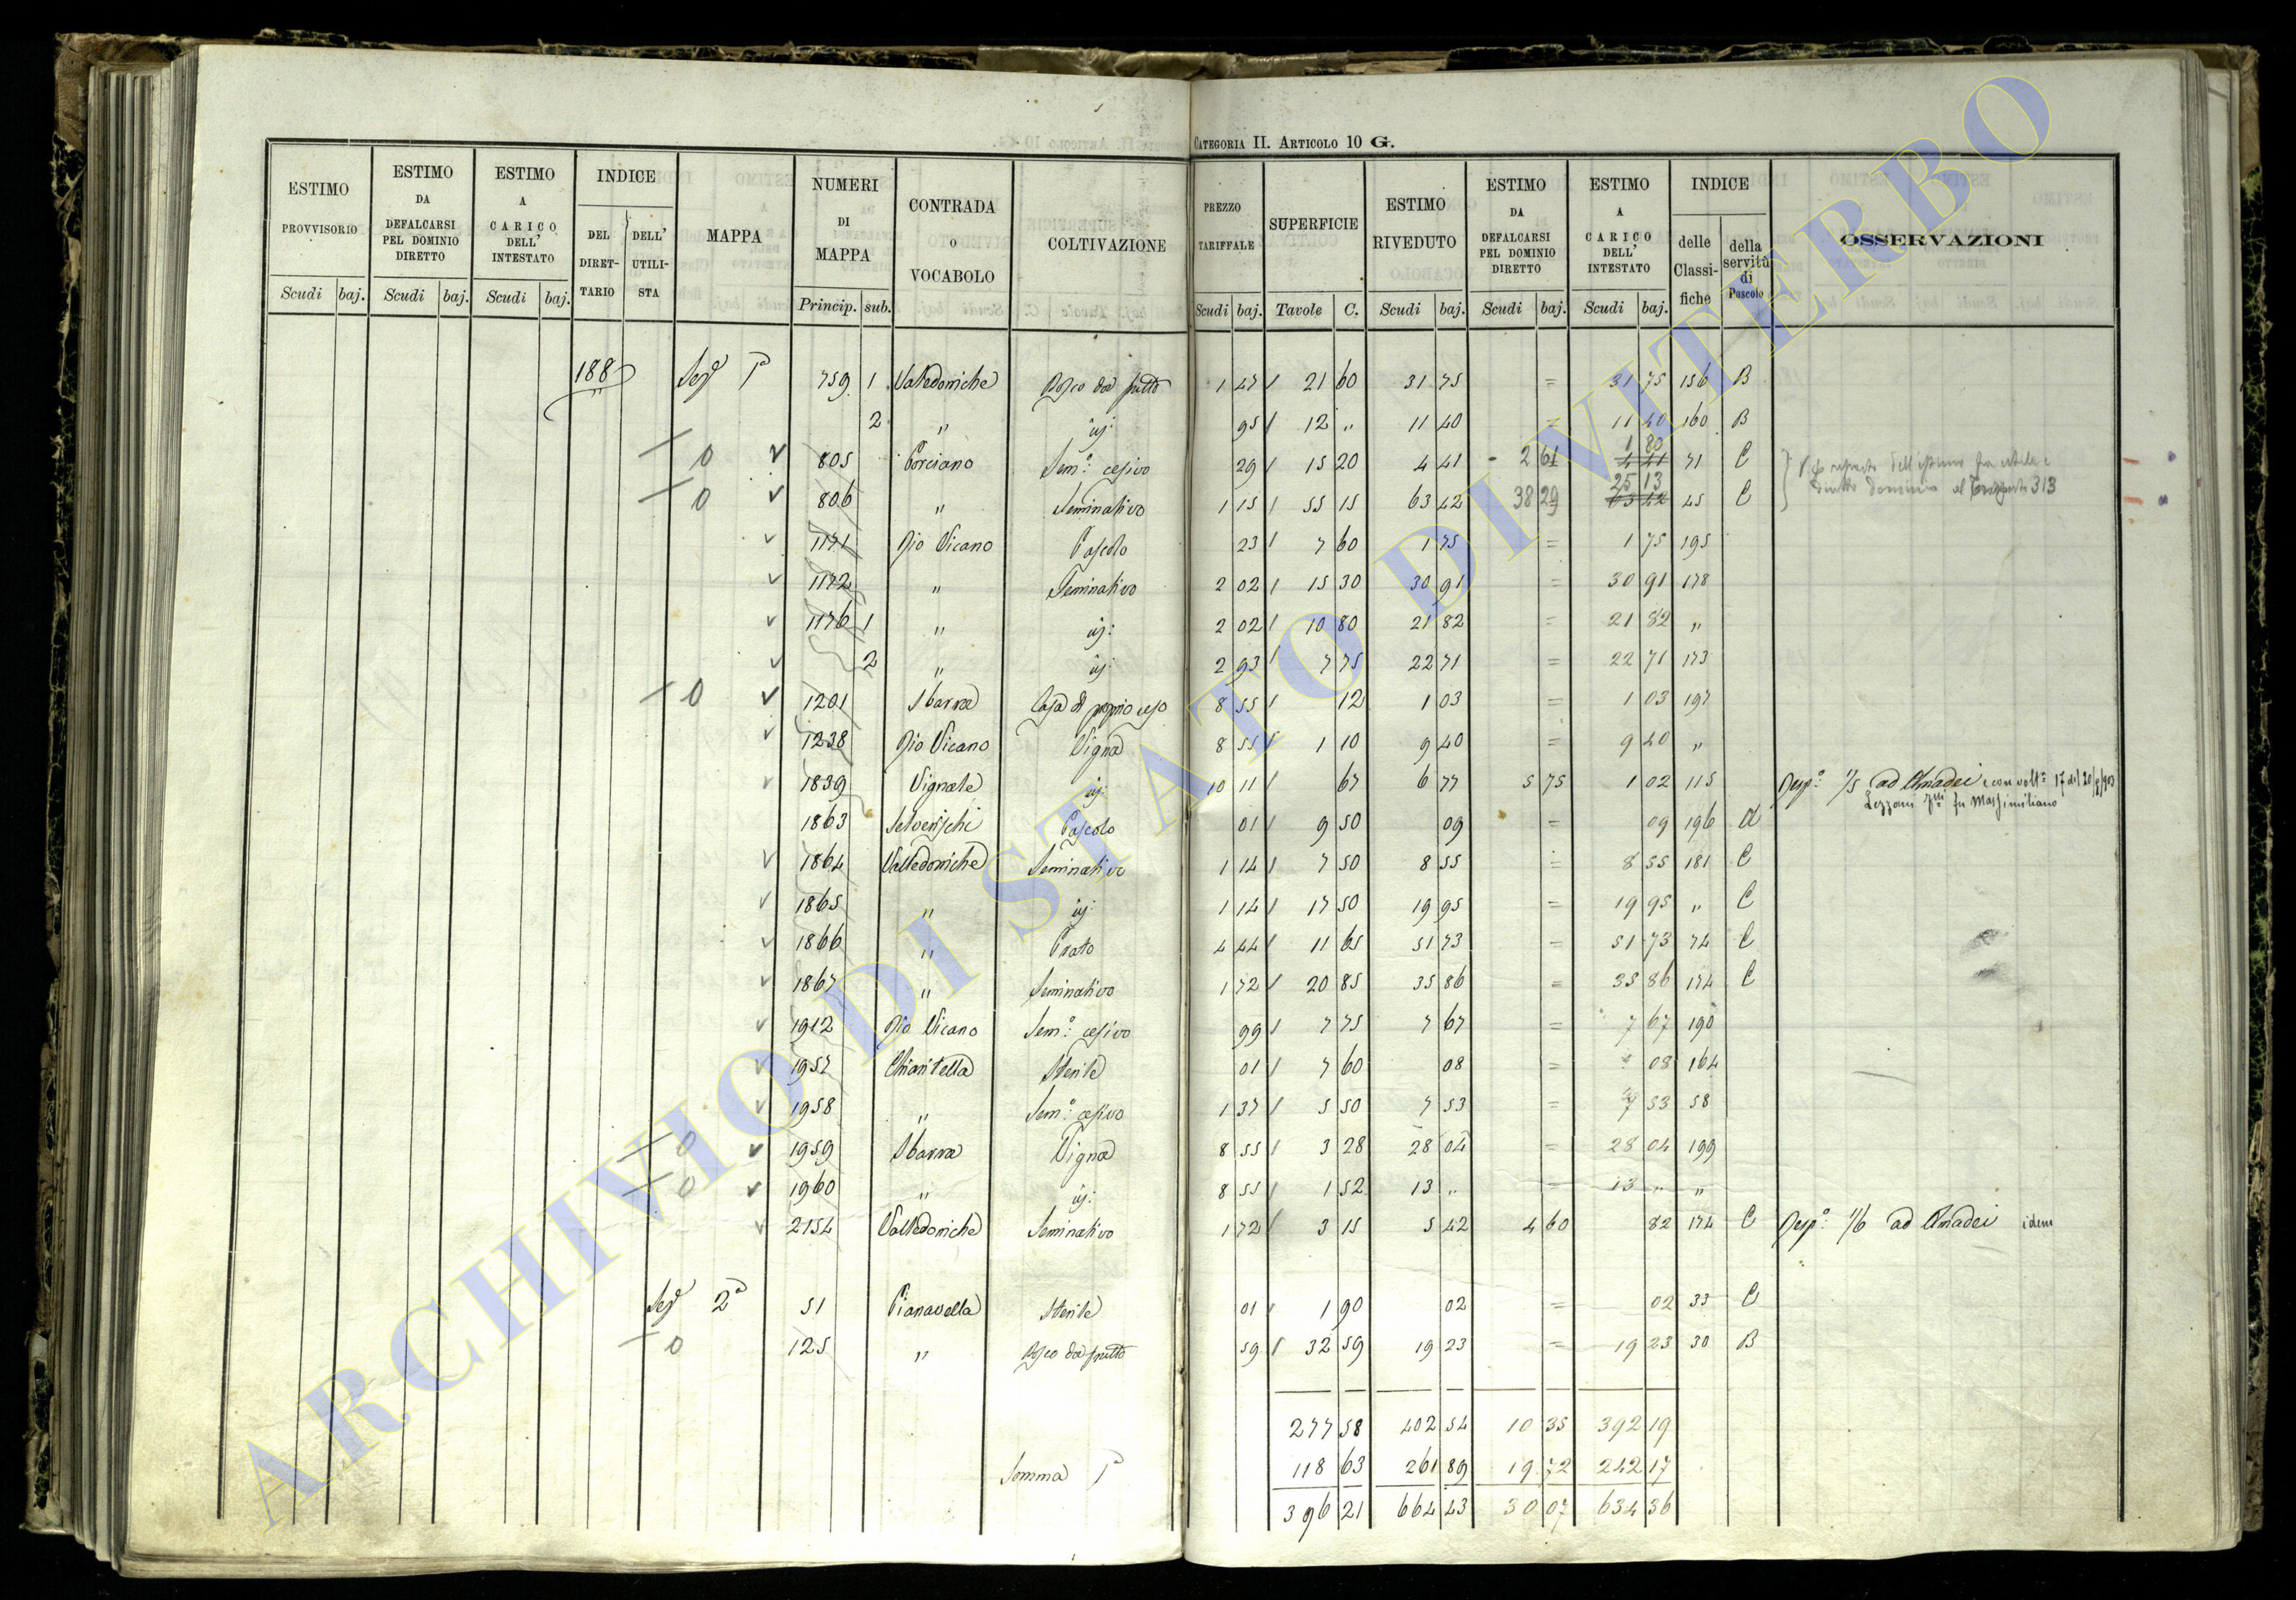 CATEGORIA II. ARTICOLO 10 G.
ESTIMO PROVVISORIO | ESTIMO DA DEFALCARSI PEL DOMINIO DIRETTO | ESTIMO A CARICO DELL' INTESTATO | INDICE DEL DIRETTARIO | DELL' UTILISTA | MAPPA | NUMERI DI MAPPA | CONTRADA O VOCABOLO | COLTIVAZIONE | PREZZO TARIFFALE | SUPERFICIE | ESTIMO RIVEDUTO | ESTIMO DA DEFALCARSI PEL DOMINIO DIRETTO | ESTIMO A CARICO DELL' INTESTATO | INDICE delle Classifiche | della servitù di Pascolo | OSSERVAZIONI
Scudi baj. Scudi baj. Scudi baj. Princip. sub. Scudi baj. Tavole C. Scudi baj. Scudi baj. Scudi baj.
188 Sez. 1a 759 1 Valledomiche Bosco da frutto 1 47 21 60 31 75 = 31 75 156 B
2 " id: 95 12 " 11 40 = 11 40 160 B
0 v 805 Corciano Sem.o cesivo 29 15 20 4 41 2 61 1 80 4 41 71 C
0 v 806 " Seminativo 1 15 55 15 63 42 38 29 25 13 63 42 45 C 313
v 1171 Rio Vicano Pascolo 23 7 60 1 75 = 1 75 195
v 1172 " Seminativo 2 02 15 30 30 91 = 30 91 178
v 1176 1 " id: 2 02 10 80 21 82 = 21 82 "
v 2 " id: 2 93 7 75 22 71 = 22 71 173
0 v 1201 Sbarra Casa di proprio uso 8 55 12 1 03 = 1 03 197
v 1238 Rio Vicano Vigna 8 55 1 10 9 40 = 9 40 "
v 1839 Vignale id: 10 11 67 6 77 5 75 1 02 115 Risp.o 1/5 ad Amadei
fu Massimiliano
1863 Pascolo 01 9 50 09 = 09 196 A
v 1864 Valledomiche Seminativo 1 14 7 50 8 55 = 8 55 181 C
v 1865 " id: 1 14 17 50 19 95 = 19 95 " C
v 1866 " Prato 4 44 11 65 51 73 = 51 73 74 C
v 1867 " Seminativo 1 72 20 85 35 86 = 35 86 174 C
v 1912 Rio Vicano Sem.o cesivo 99 7 75 7 67 = 7 67 190
v 1957 Chiaritella Sterile 01 7 60 08 = 08 164
v 1958 " Sem.o cesivo 1 37 5 50 7 53 = 7 53 58
0 v 1959 Sbarra Vigna 8 55 3 28 28 04 = 28 04 199
0 v 1960 " id: 8 55 1 52 13 " = 13 " "
v 2154 Valledomiche Seminativo 1 72 3 15 5 42 4 60 82 174 C Risp.o 1/6 ad Amadei idem
Sez. 2a 51 Pianavella Sterile 01 1 90 02 = 02 33 C
0 125 " Bosco da frutto 59 32 59 19 23 = 19 23 30 B
277 58 402 54 10 35 392 19
Somma 1a 118 63 261 89 19 72 242 17
396 21 664 43 30 07 634 36
ARCHIVIO DI STATO DI VITERBO